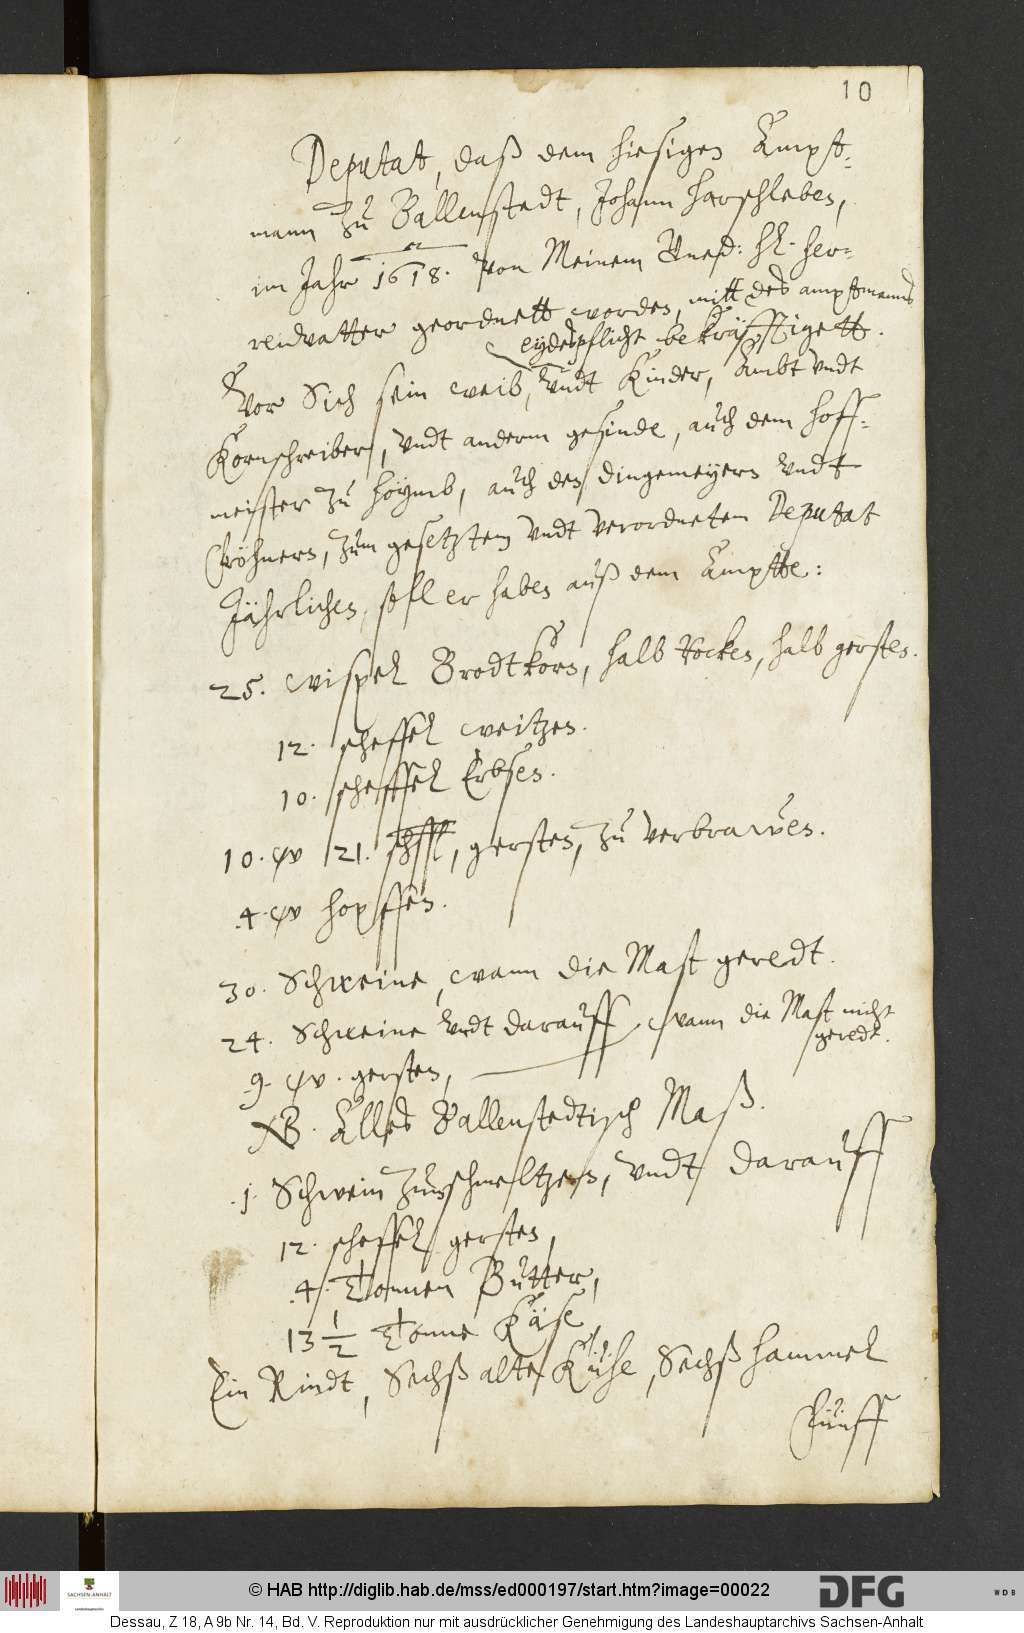 10
Deputat, daß dem hiesigen Ampt-
mann zu Ballenstedt, Johann Harschleben,
im Jahr 1618. von Meinem Gned: H. Her-
renvatter geordnett worden, mitt des amptmanns
eydespflicht bekräfftigett.
Vor Sich sein weib, undt Kinder, Ambt undt
Kornschreibern, undt anderm gesinde, auch dem Hoff-
meister zu Hoymb, auch den dingemeyern undt
fröhnern, zum gesetztem undt verordneten Deputat
Jährlichen, soll er haben auß dem Ampte:
25. wispel Brodtkorn, halb Rocken, halb gersten.
12. scheffel weitzen.
10. scheffel Erbsen.
10. w 21. schfl, gersten, zu verbrawen.
4. w hopffen.
30. Schweine, wann die Mast geredt.
24. Schweine undt darauff, wann die Mast nicht
geredt.
9. w. gersten,
NB. Alles Ballenstedtisch Maß.
1. Schwein zum schmeltzen, undt darauff
12. scheffel gersten,
4. Tonnen Butter,
13 1/2 Tonne Käse,
Ein Rindt, Sechß alte Kühe, Sechß hammel
Fünff
SACHSEN-ANHALT
© HAB http://diglib.hab.de/mss/ed000197/start.htm?image=00022
DFG
WDB
Dessau, Z 18, A 9b Nr. 14, Bd. V. Reproduktion nur mit ausdrücklicher Genehmigung des Landeshauptarchivs Sachsen-Anhalt